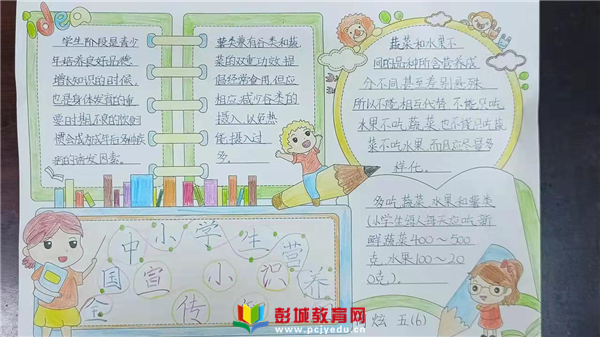 idea
学生阶段是青少
年培养良好品德
增长知识的时候,
也是身体发育的重
要时期,不良的饮食习
惯会成为成年后多种疾
病的诱发因素。
薯类兼有谷类和蔬
菜的双重功效,提
倡经常食用,但应
相应减少谷类的
摄入,以免热
能摄入过
多。
蔬菜和水果不
同的品种所含营养成
分不同,甚至差别悬殊
所以不能相互代替,不能只吃
水果不吃蔬菜也不能只吃蔬
菜不吃水果,而且应尽量多
样化。
多吃蔬菜、水果和薯类
(小学生每人每天应吃新
鲜蔬菜400~500
克,水果100~20
0克)。
中小学生营
全国宣小识养
传
炫 五(6)
彭城教育网
www.pcjyedu.cn